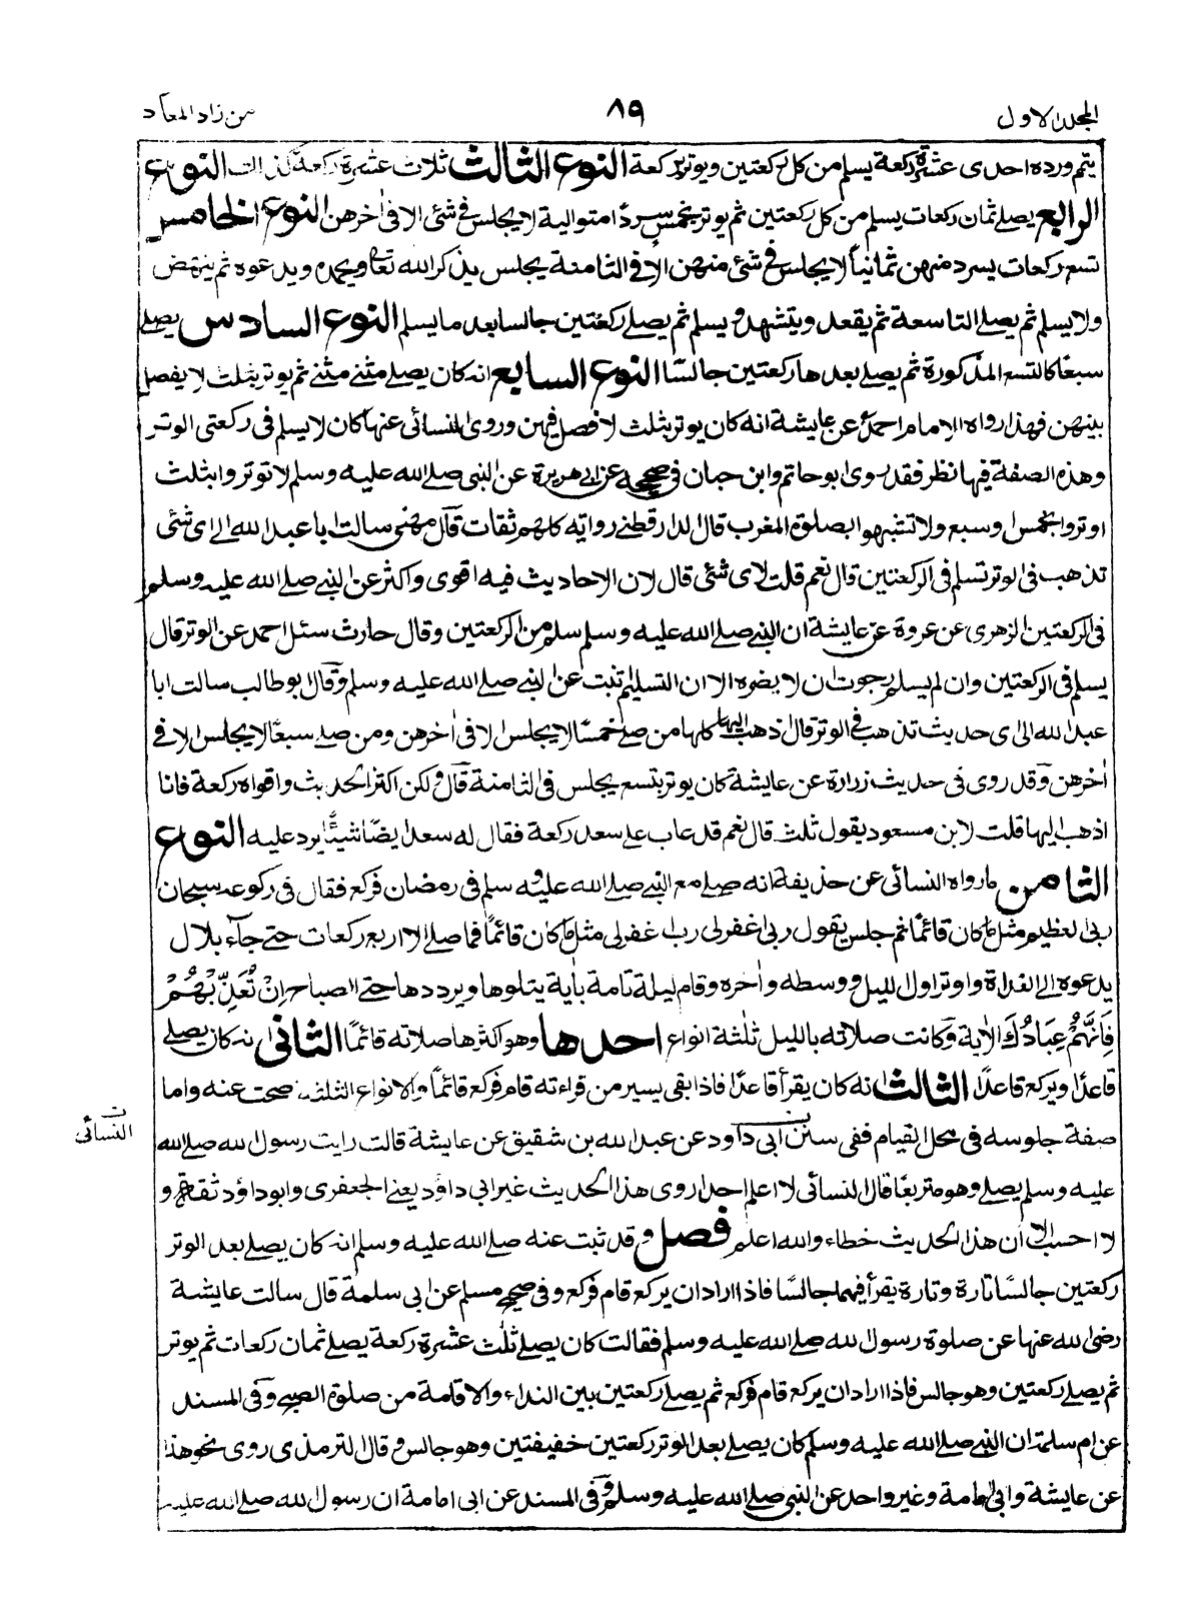 المجلد الاول
٨٩
من زاد المعاد
يتم ورده احدى عشرة ركعة يسلم من كل ركعتين ويوتر بركعة النوع الثالث ثلاث عشرة ركعة كذالك النوع
الرابع يصلے ثمان ركعات يسلم من كل ركعتين ثم يوتر بخمس سردًا متوالية لا يجلس فى شئ الا فى اٰخرهن النوع الخامس
تسع ركعات يسرد منهن ثمانياً لا يجلس فى شئ منهن الا فى الثامنة يجلس يذكر الله تعالى ويحمده ويدعوه ثم ينهض
ولا يسلم ثم يصلے التاسعة ثم يقعد ويتشهد ويسلم ثم يصلے ركعتين جالسا بعد ما يسلم النوع السادس يصلے
سبعًا كالتسع المذكورة ثم يصلے بعدها ركعتين جالسًا النوع السابع انه كان يصلے مثنے مثنے ثم يوتر بثلث لا يفصل
بينهن فهذا رواه الامام احمد عن عايشة انه كان يوتر بثلث لا فصل فيهن وروى النسائى عنها كان لا يسلم فى ركعتى الوتر
وهذه الصفة فيها نظر فقد روى ابو حاتم وابن حبان فى صحيحه عن ابى هريرة عن النبى صلے الله عليه وسلم لا توتروا بثلث
اوتروا بخمس او سبع ولا تشبهوا بصلوة المغرب قال الدار قطنے رواته كلهم ثقات قال مهنى سالت ابا عبد الله الے اى شئ
تذهب فى الوتر تسلم فى الركعتين قال نعم قلت لاى شئ قال لان الاحاديث فيه اقوى واكثر عن النبے صلے الله عليه وسلم
فى الركعتين الزهرى عن عروة عن عايشة ان النبے صلے الله عليه وسلم سلم من الركعتين وقال حارث سئل احمد عن الوتر قال
يسلم فى الركعتين وان لم يسلم رجوت ان لا يضره الا ان التسليم ثبت عن النبے صلے الله عليه وسلم وقال ابو طالب سالت ابا
عبد الله الى اى حديث تذهب فى الوتر قال اذهب اليها كلها من صلے خمسًا لا يجلس الا فى اٰخرهن ومن صلے سبعًا لا يجلس الا فى
اٰخرهن وقد روى فى حديث زرارة عن عايشة كان يوتر بتسع يجلس فى الثامنة قال ولكن اكثر الحديث واقواه ركعة فانا
اذهب اليها قلت لابن مسعود يقول ثلث قال نعم قد عاب على سعد ركعة فقال له سعد ايضًا شيئًا يرد عليه النوع
الثامن ما رواه النسائى عن حذيفة انه صلے مع النبے صلے الله عليه وسلم فى رمضان فركع فقال فى ركوعه سبحان
ربى العظيم مثل ما كان قائمًا ثم جلس يقول ربى اغفر لى رب اغفر لى مثل ما كان قائمًا فما صلے الا اربع ركعات حتے جآء بلال
يدعوه الے الغداة واوتر اول الليل ووسطه واٰخره وقام ليلة تامة باٰية يتلوها ويرددها حتے الصباح اِنْ تُعَذِّبْهُمْ
فَاِنَّهُمْ عِبَادُكَ الاٰية وكانت صلاته بالليل ثلٰثة انواع احدها وهو اكثرها صلاته قائمًا الثانى انه كان يصلے
قاعدًا ويركع قاعدًا الثالث انه كان يقرأ قاعدًا فاذا بقى يسير من قراءته قام فركع قائمًا والانواع الثلثة صحت عنه واما
صفة جلوسه فى محل القيام ففى سنن ابى داود عن عبد الله بن شقيق عن عايشة قالت رايت رسول الله صلے الله
النسائى
عليه وسلم يصلے وهو متربعًا قال النسائى لا اعلم احدا روى هذا الحديث غير ابى داؤد يعنے الجعفرى وابو داؤد ثقة و
لا احسب الا ان هذا الحديث خطاء والله اعلم فصل وقد ثبت عنه صلے الله عليه وسلم انه كان يصلے بعد الوتر
ركعتين جالسًا تارة وتارة يقرأ فيهما جالسًا فاذا اراد ان يركع قام فركع وفى صحيح مسلم عن ابى سلمة قال سالت عايشة
رضى الله عنها عن صلوة رسول الله صلے الله عليه وسلم فقالت كان يصلے ثلٰث عشرة ركعة يصلے ثمان ركعات ثم يوتر
ثم يصلے ركعتين وهو جالس فاذا اراد ان يركع قام فركع ثم يصلے ركعتين بين النداء والاقامة من صلوة الصبح وفى المسند
عن ام سلمة ان النبے صلے الله عليه وسلم كان يصلے بعد الوتر ركعتين خفيفتين وهو جالس وقال الترمذى روى نحو هذا
عن عايشة وابى امامة وغير واحد عن النبى صلے الله عليه وسلم وفى المسند عن ابى امامة ان رسول الله صلے الله عليه